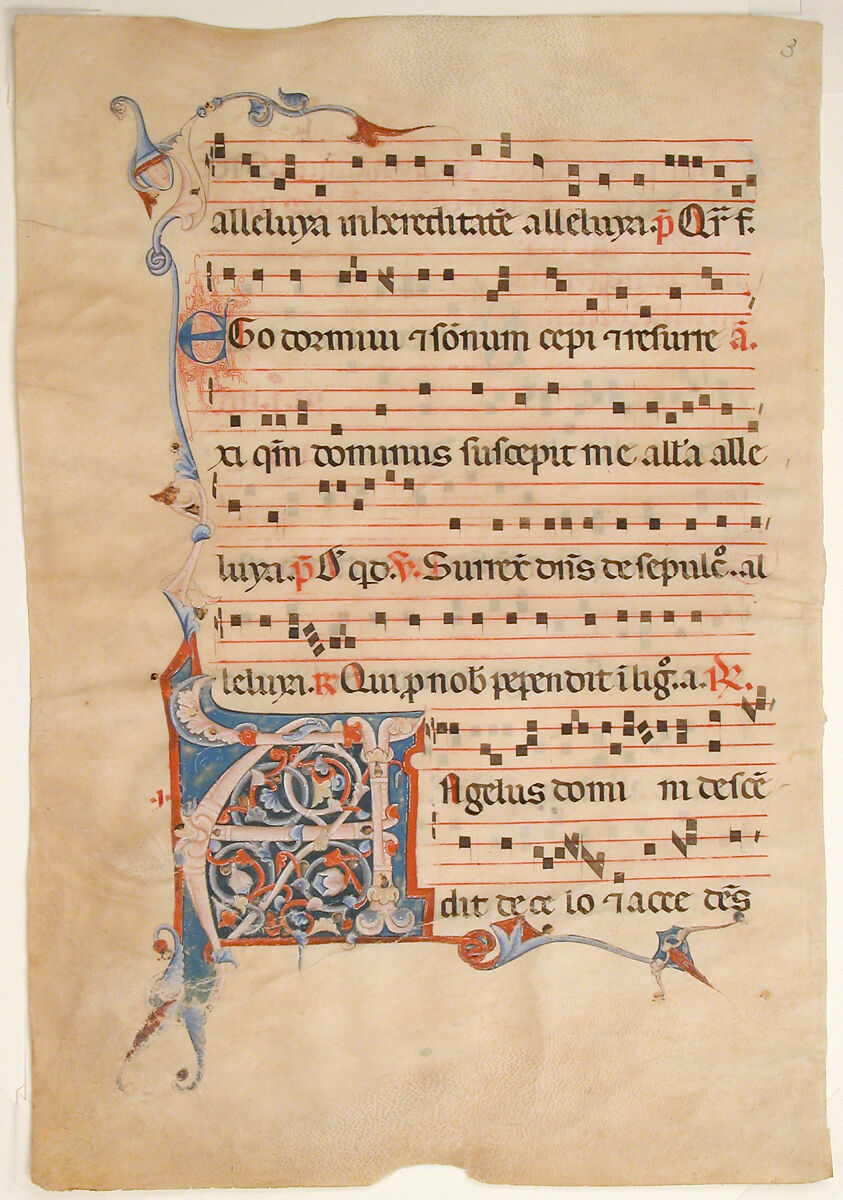 3
alleluya in hereditatē alleluya. p̄ Qr̄ f.
EGo dormiui ⁊ sōnum cepi ⁊ resurre ā.
xi qm̄ dominus suscepit me all'a alle
luya. p̄ qd. v̄. Surrex̄ dn̄s de sepulc̊. al
leluya. R Qui p nob̄ pependit ī lig̊. a. R.
.j.
ANgelus domi ni descē
dit de ce lo ⁊ acce dēs